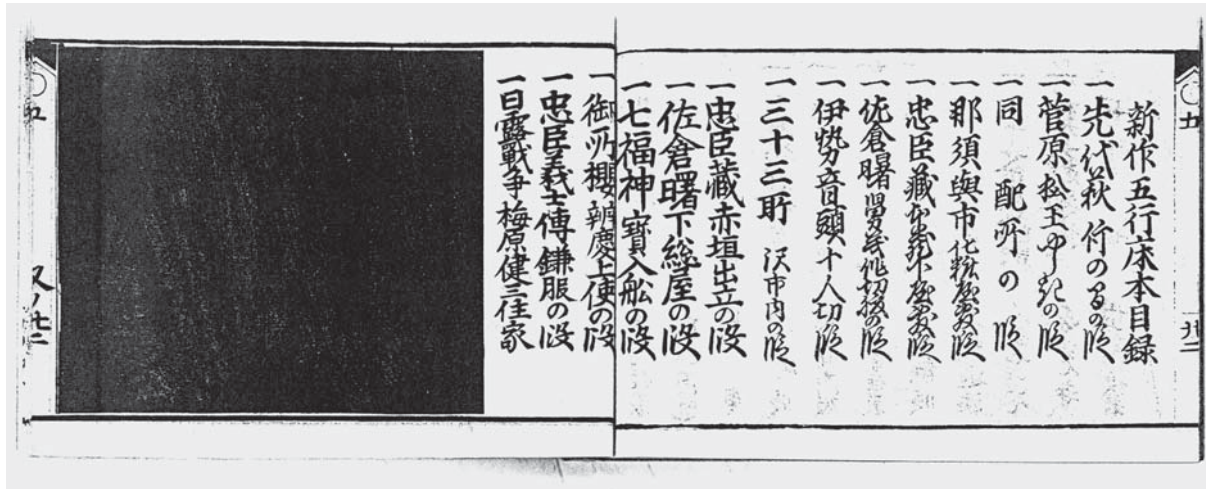 五
廿二
新作五行床本目録
一先代萩竹の間の段
一菅原松王やしきの段
一同 配所の 段
一那須與市化粧屋敷段
一忠臣藏本蔵下屋敷段
一佐倉曙 切腹の段
一伊勢音頭十人切段
一三十三所 沢市内の段
一忠臣藏赤垣出立の段
一佐倉曙下総屋の段
一七福神寶入舩の段
一御所櫻辨慶上使の段
一忠臣義士傳鎌腹の段
一日露戰争梅原健三住家
五
又ノ廿二